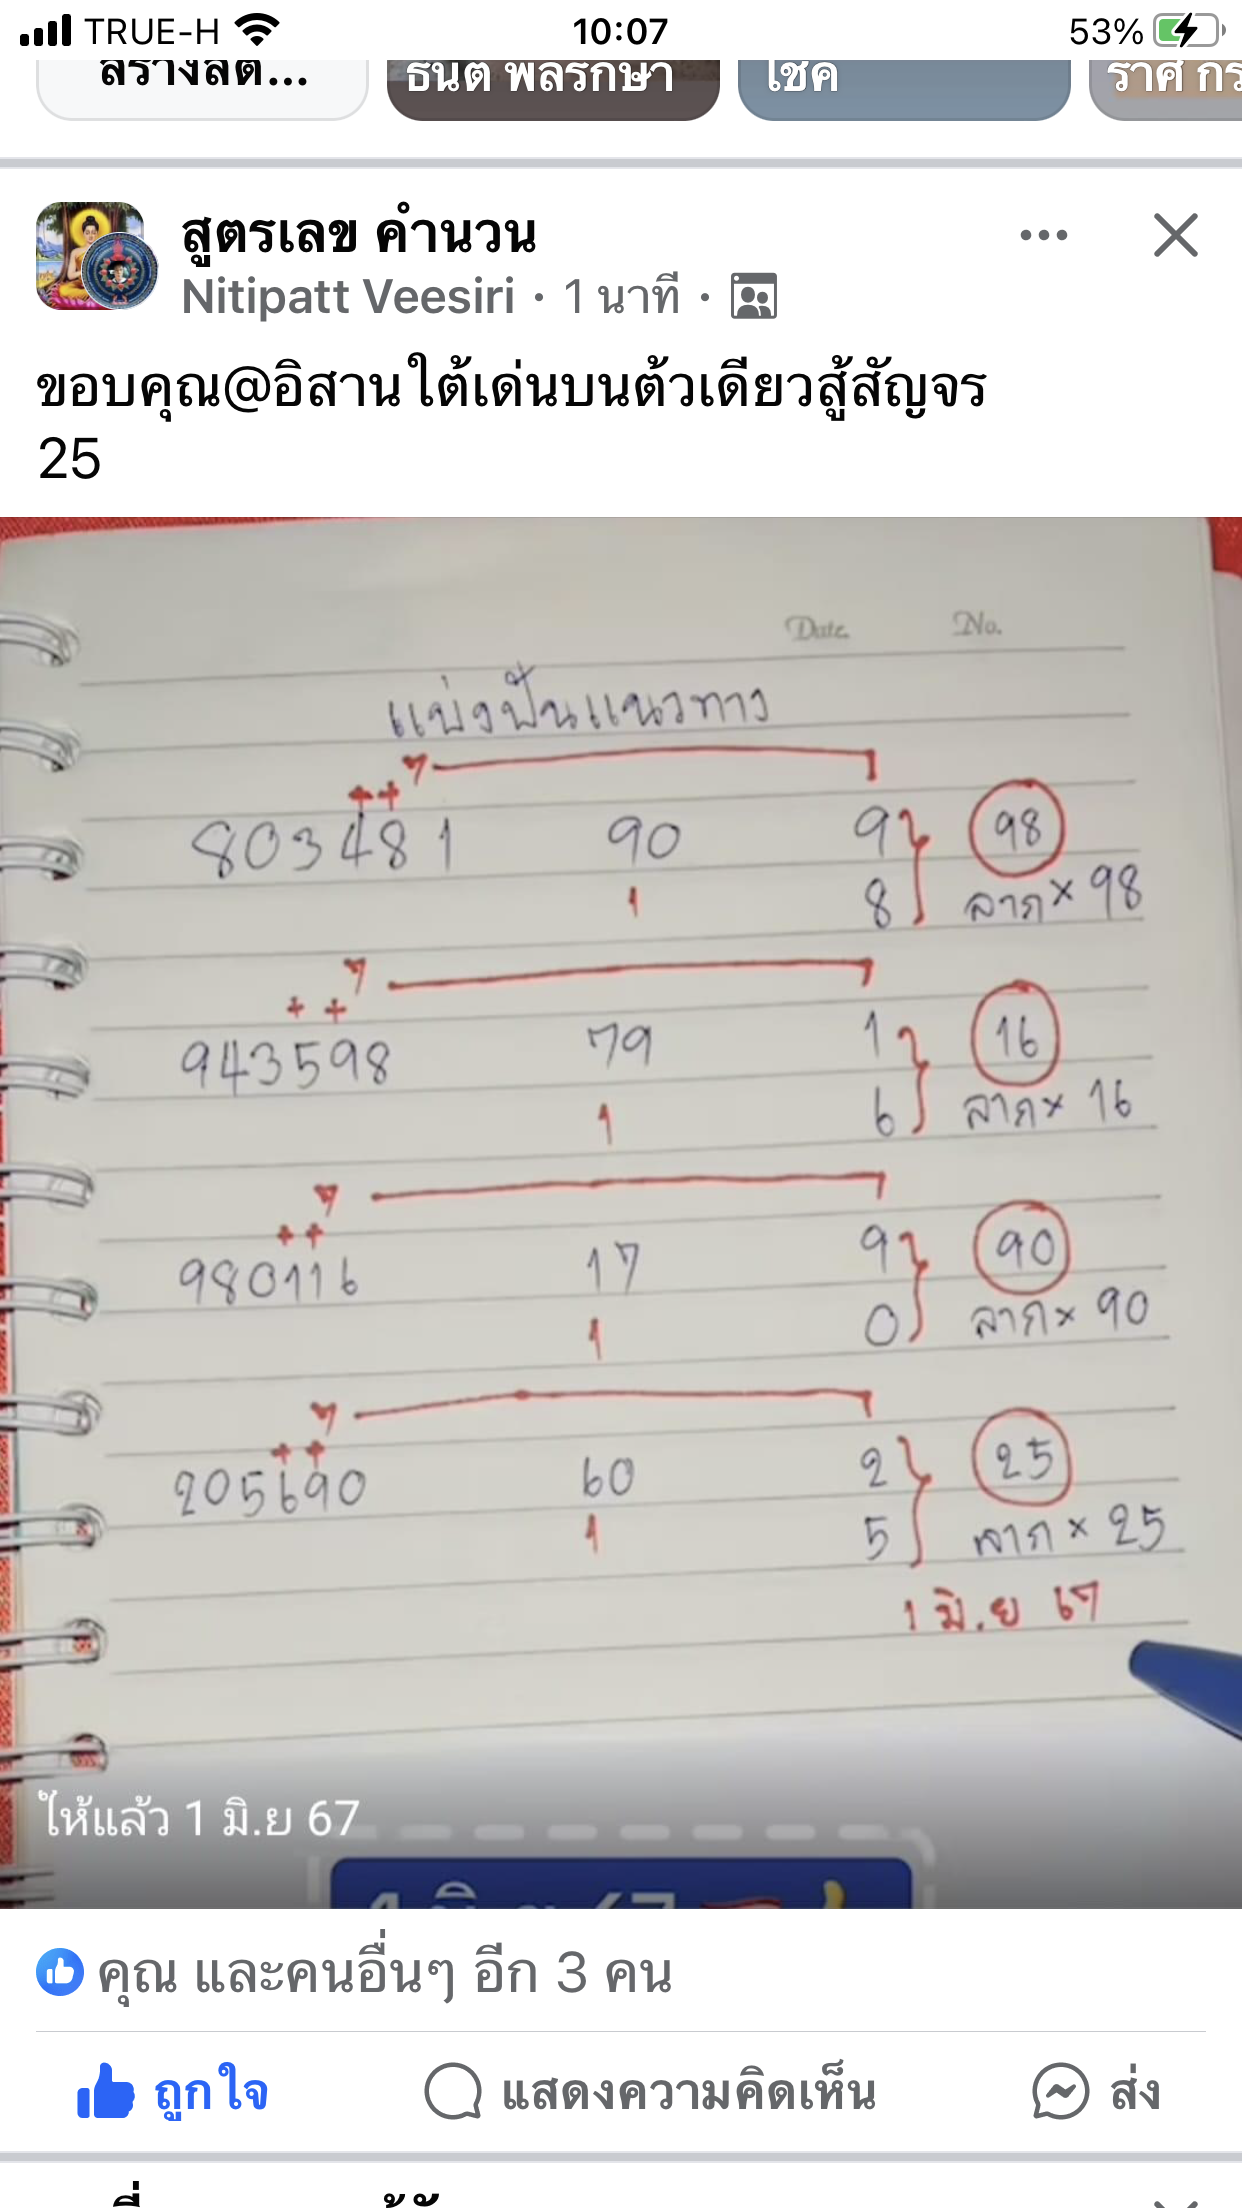 TRUE-H 10:07 53%
สร้างสต... ธนต พลรักษา โชค
สูตรเลข คำนวน
Nitipatt Veesiri · 1 นาที ·
ขอบคุณ@อิสานใต้เด่นบนต้วเดียวสู้สัญจร
25
Date. No.
แบ่งปันแนวทาง
7
++
803481 90 9 98
1 8 ลาภ× 98
7
+ +
943598 79 1 16
1 6 ลาภ× 16
7
++
980116 17 9 90
1 0 ลาภ× 90
7
++
205690 60 2 25
1 5 ลาภ× 25
1 มิ.ย 67
ให้แล้ว 1 มิ.ย 67
คุณ และคนอื่นๆ อีก 3 คน
ถูกใจ แสดงความคิดเห็น ส่ง